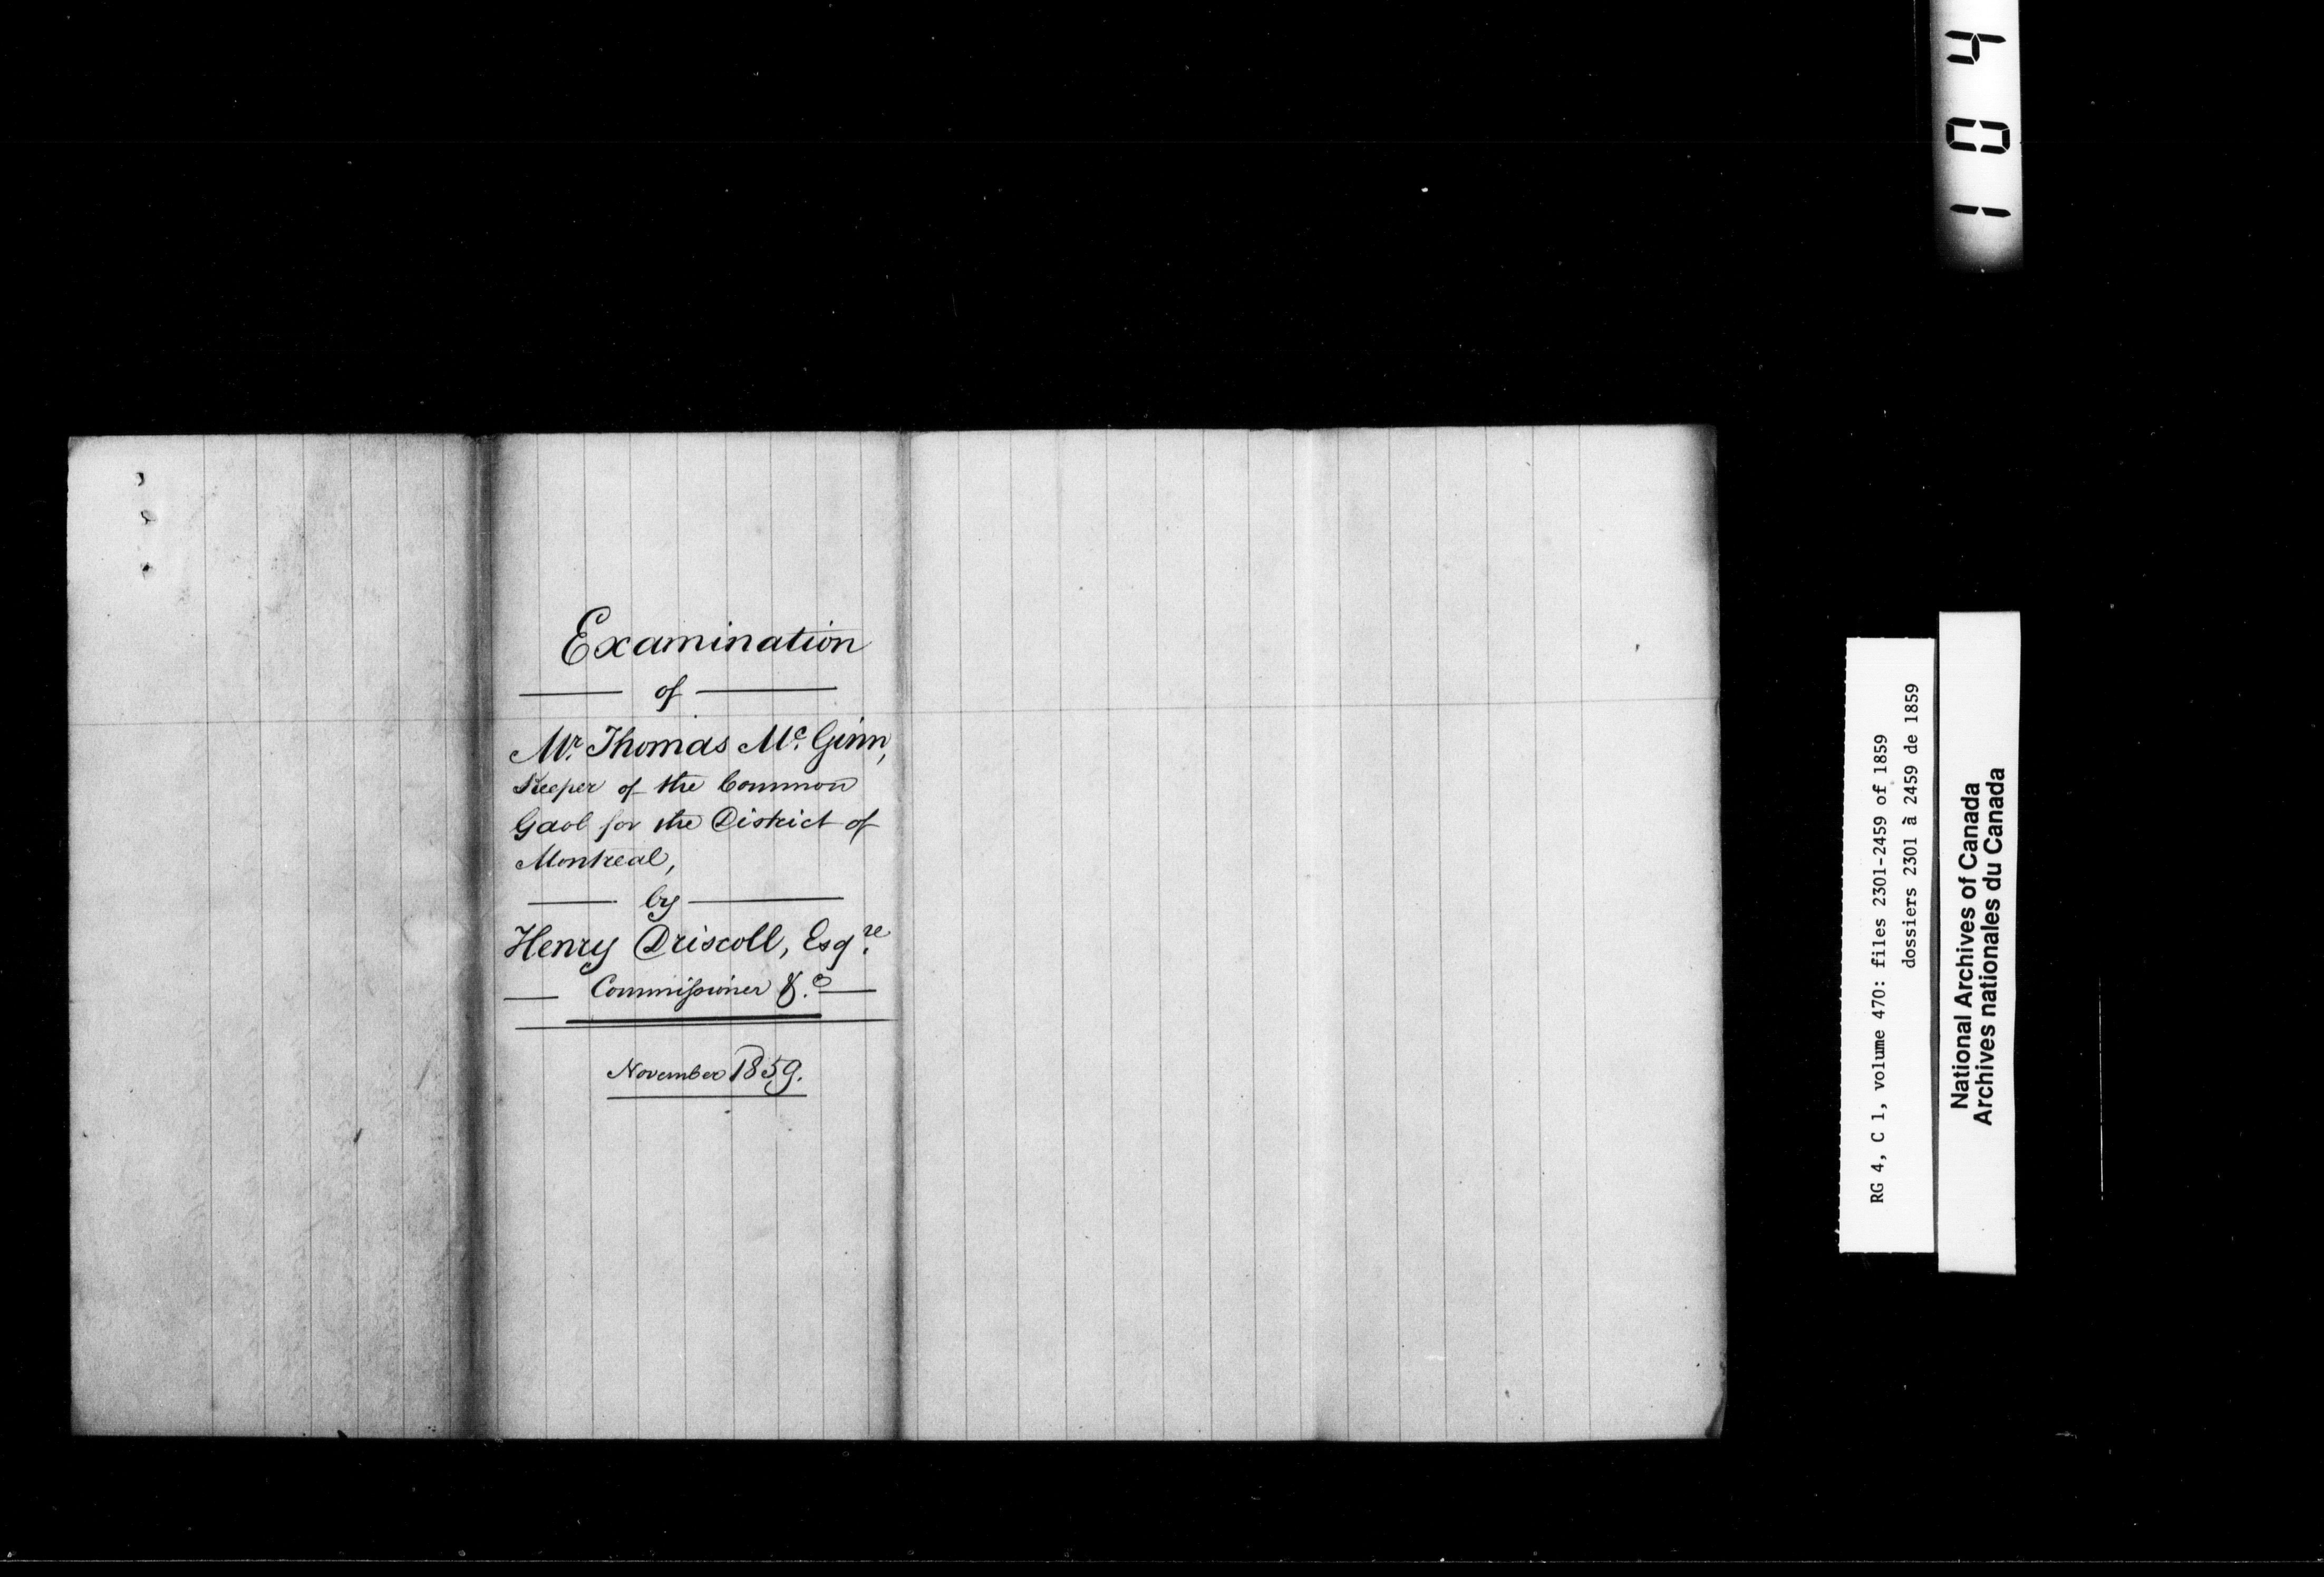 Examination
of
Mr. Thomas Mc. Ginn,
Keeper of the Common
Gaol for the District of
Montreal,
by
Henry Driscoll, Esqre.
Commissioner &c.
November 1859.
1 0 4
RG 4, C 1, volume 470: files 2301-2459 of 1859
dossiers 2301 à 2459 de 1859
National Archives of Canada
Archives nationales du Canada